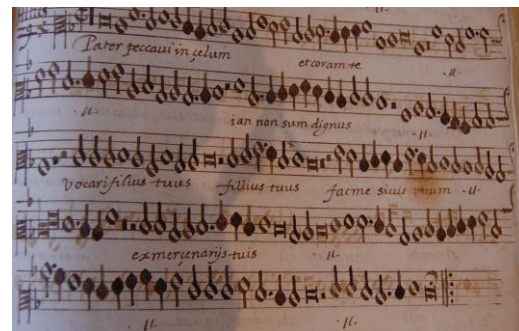 Pater peccaui in çelum et coram te .ıı.
.ıı. ian non sum dignus .ıı.
vocari filius tuus fillius tuus fac me sicut vnum .ıı.
ex merçenarijs tuis .ıı.
.ıı. .ıı.